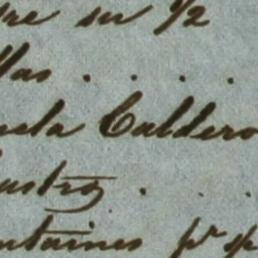 re su 1/2
las . . . .
uela Caldero
astro .
ntaines pr